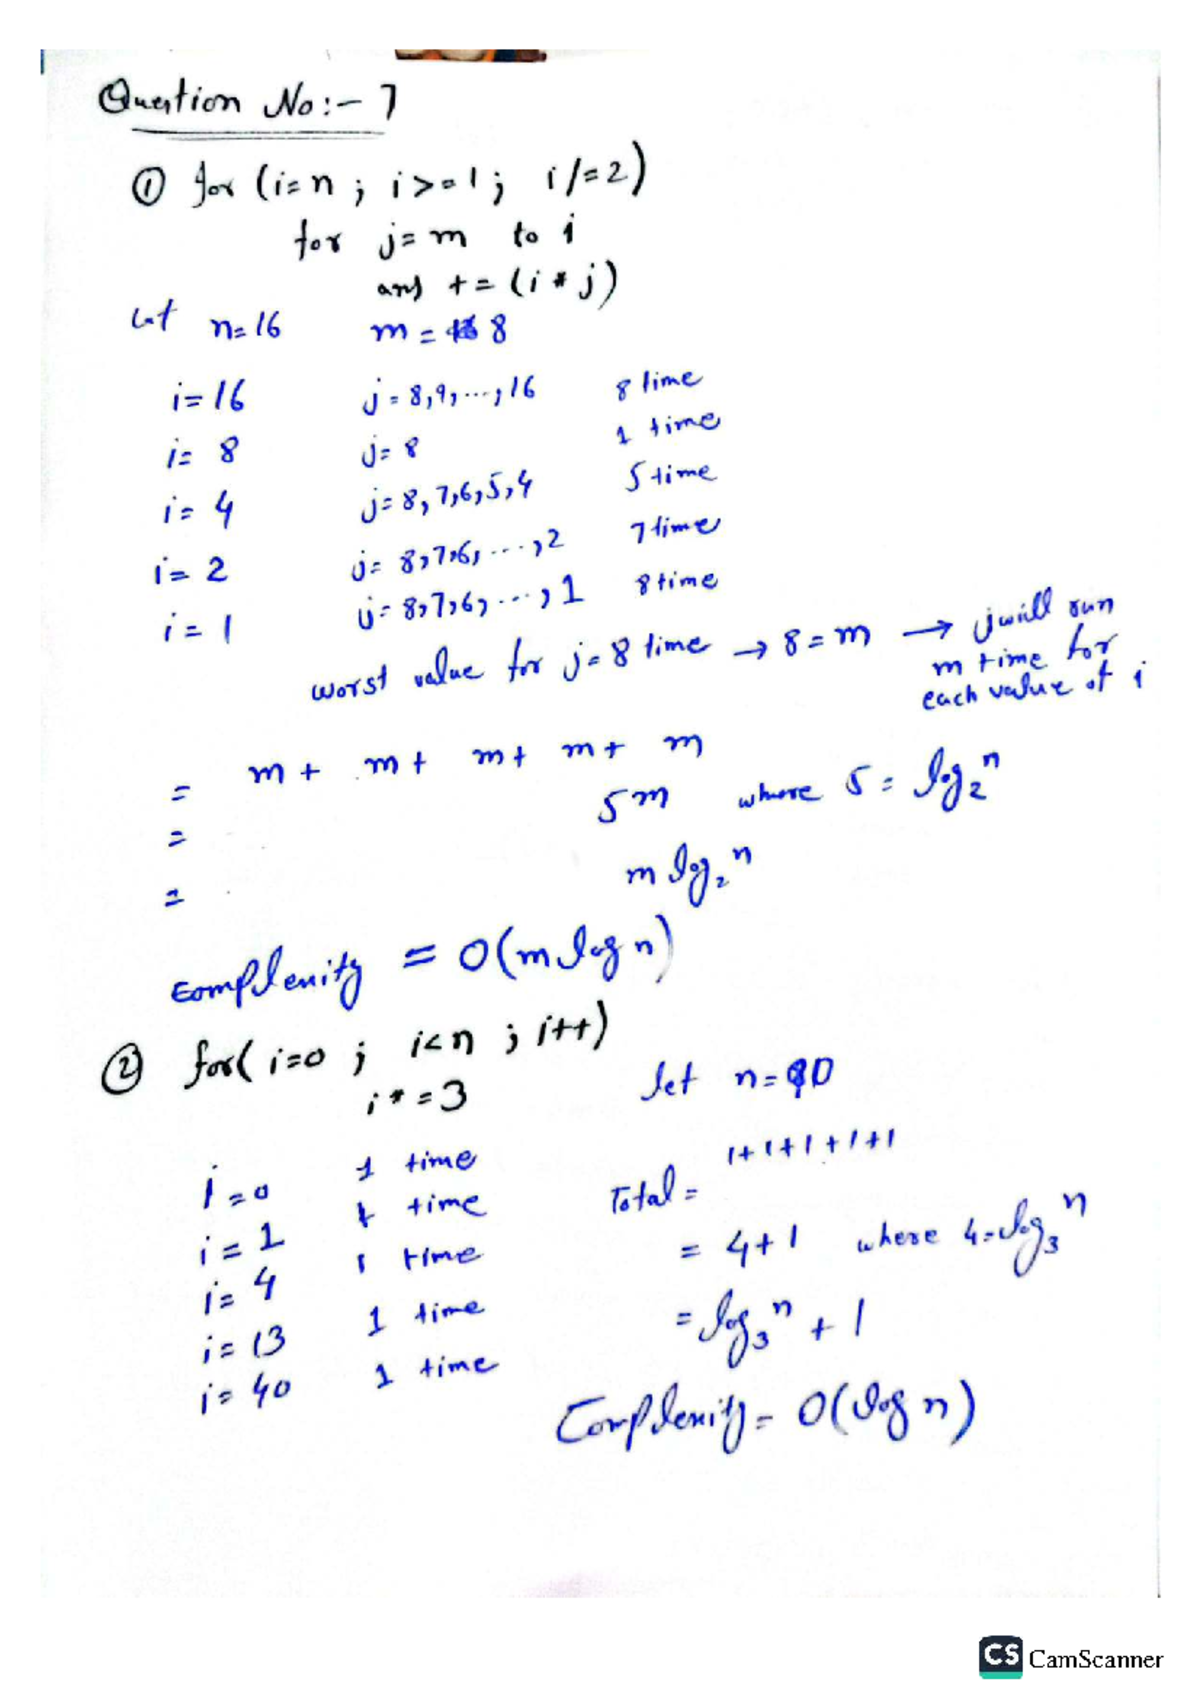 Question No:- 7
① for (i=n ; i>=1 ; i/=2)
for j=m to i
ans += (i * j)
let n=16 m = 8
i=16 j = 8,9,...,16 8 time
i= 8 j= 8 1 time
i= 4 j= 8,7,6,5,4 5 time
i= 2 j= 8,7,6,...,2 7 time
i= 1 j= 8,7,6,...,1 8 time
worst value for j=8 time → 8=m → j will run
m time for
each value of i
= m + m + m + m + m
= 5m where 5 = log₂ⁿ
= m log₂ⁿ
Complenity = O(m log n)
② for( i=0 ; i<n ; i++)
i*=3 let n=90
i=0 1 time
i=1 1 time
i=4 1 time
i=13 1 time
i=40 1 time
Total = 1+1+1+1+1
= 4+1 where 4=log₃ⁿ
= log₃ⁿ + 1
Complenity = O(log n)
CS CamScanner